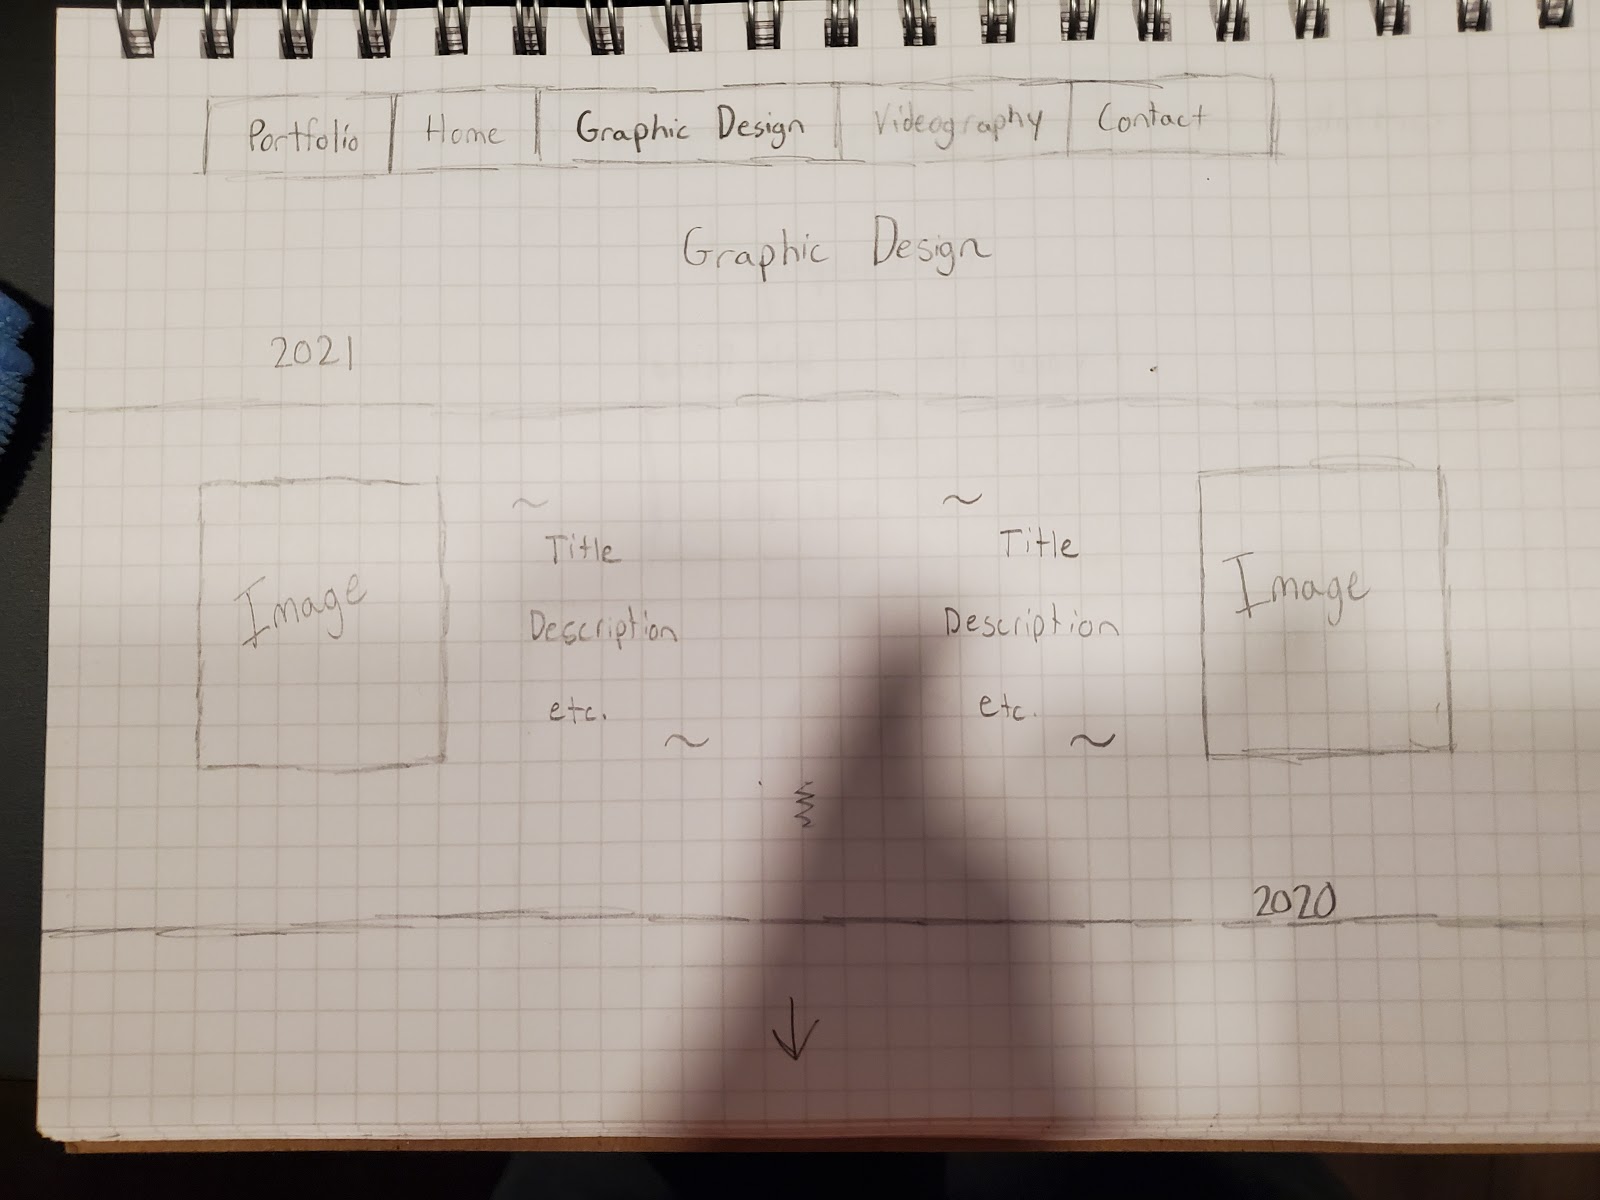 Portfolio Home Graphic Design Videography Contact
Graphic Design
2021
Image
~
Title
Description
etc.
~
~
Title
Description
etc.
~
Image
2020